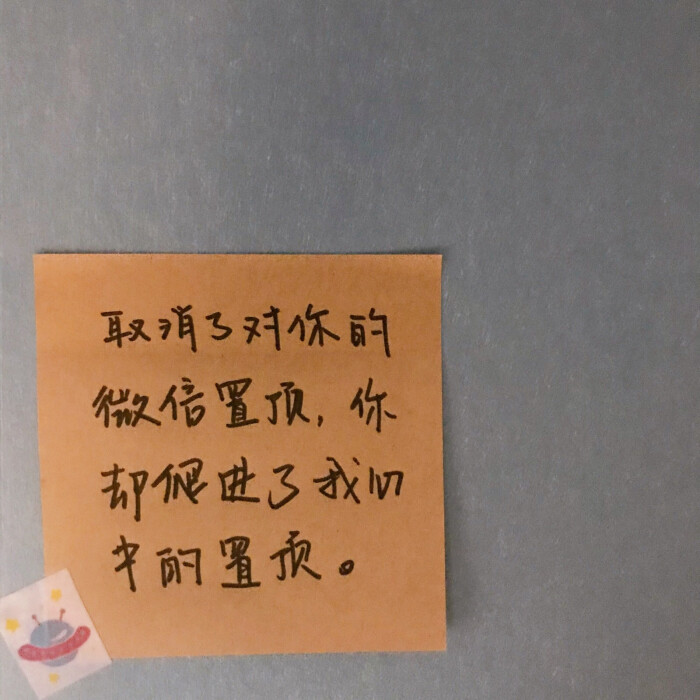 取消了对你的
微信置顶，你
却爬进了我心
中的置顶。